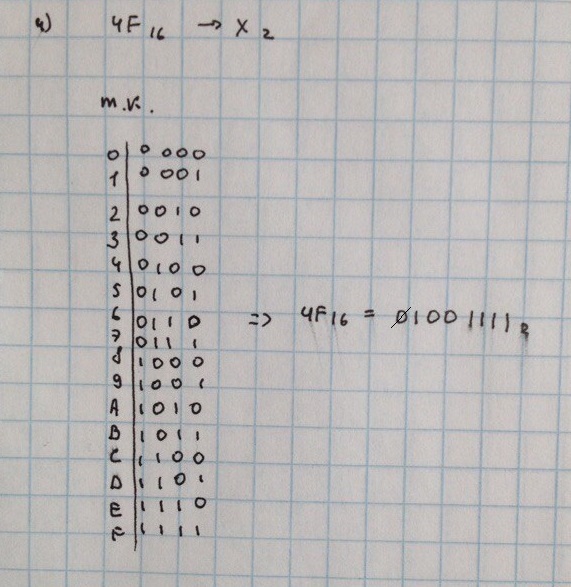 4) 4F₁₆ → X₂
т.к.
0 | 0000
1 | 0001
2 | 0010
3 | 0011
4 | 0100
5 | 0101
6 | 0110
7 | 0111
8 | 1000
9 | 1001
A | 1010
B | 1011
C | 1100
D | 1101
E | 1110
F | 1111
=> 4F₁₆ = 01001111₂